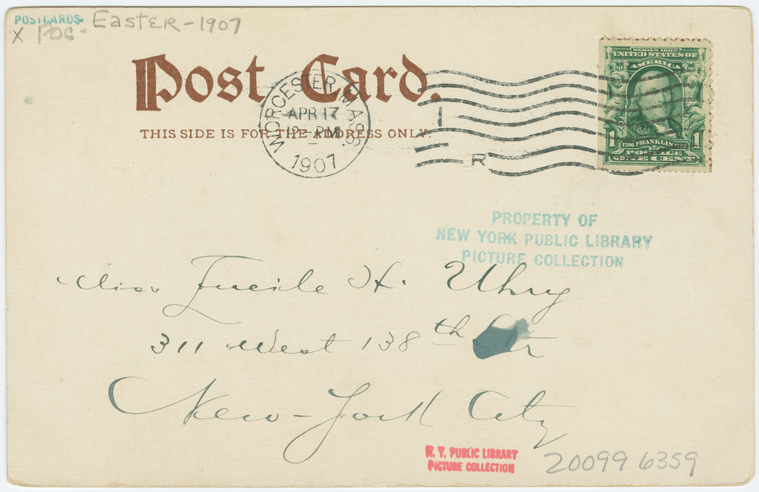 POSTCARDS
X PDC - Easter - 1907
Post Card.
THIS SIDE IS FOR THE ADDRESS ONLY.
WORCESTER, MASS.
APR 17
12 - PM
1907
R
SERIES 1902
UNITED STATES OF
AMERICA
1 FRANKLIN 1
POSTAGE
ONE CENT
PROPERTY OF
NEW YORK PUBLIC LIBRARY
PICTURE COLLECTION
Miss Lucile H. Uhry
311 West 138th Str
New-York City
N. Y. PUBLIC LIBRARY
PICTURE COLLECTION
20099 6359